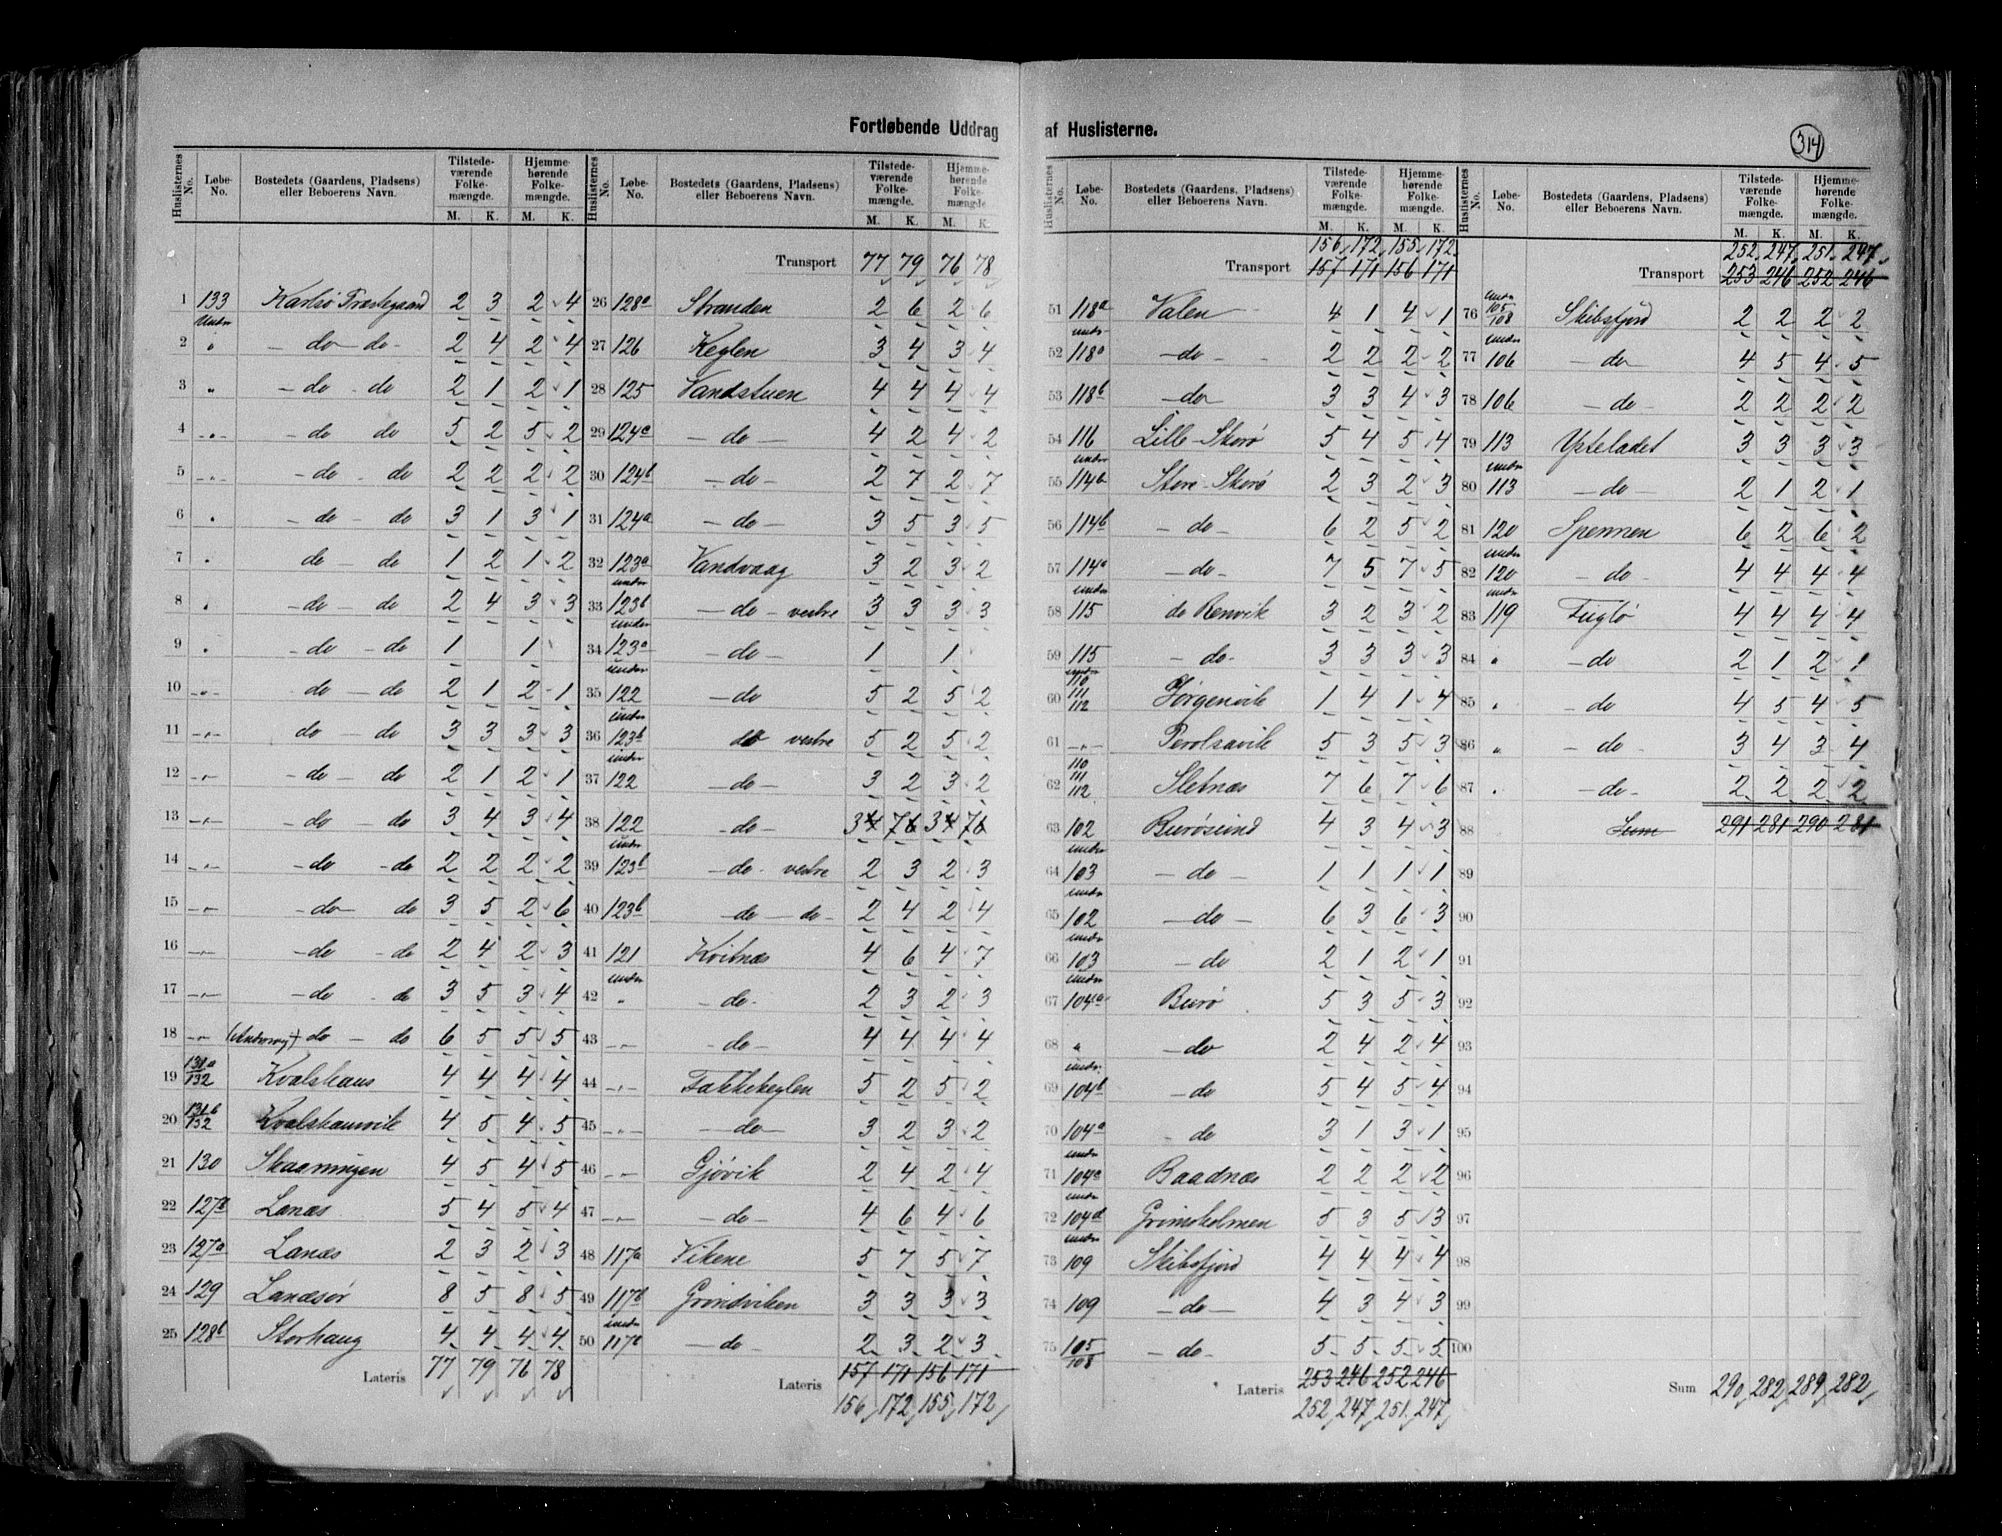 Fortløbende Uddrag af Huslisterne.
314
Huslisternes No. Løbe-No. Bostedets (Gaardens, Pladsens) eller Beboerens Navn. Tilstedeværende Folkemængde. M. K. Hjemmehørende Folkemængde. M. K.
1 133 Karlsø Præstegaard 2 3 2 4
2 Under " - do - do - 2 4 2 4
3 " - do - do 2 1 2 1
4 -"- - do do 5 2 5 2
5 -"- - do - do 2 2 2 2
6 " - do - do 3 1 3 1
7 " do - do 1 2 1 2
8 " - do - do 2 4 3 3
9 " - do - do 1 1
10 -"- do - do 2 1 2 1
11 -"- do - do 3 3 3 3
12 -"- - do - do 2 1 2 1
13 -"- - do - do 3 4 3 4
14 -"- - do - do 2 2 2 2
15 -"- - do - do 3 5 2 6
16 -"- - do - do 2 4 2 3
17 -"- - do - do 3 5 3 4
18 -"- do - do 6 5 5 5
19 131a/132 Kvalshaus 4 4 4 4
20 131b/132 Kvalshausvik 4 5 4 5
21 130 Skaaningen 4 5 4 5
22 127b Lanæs 5 4 5 4
23 127a Lanæs 2 3 2 3
24 129 Lanæsør 8 5 8 5
25 128b Storhaug 4 4 4 4
Lateris 77 79 76 78
Huslisternes No. Løbe-No. Bostedets (Gaardens, Pladsens) eller Beboerens Navn. Tilstedeværende Folkemængde. M. K. Hjemmehørende Folkemængde. M. K.
Transport 77 79 76 78
26 128a Stranden 2 6 2 6
27 126 Keglen 3 4 3 4
28 125 Vandstuen 4 4 4 4
29 124c - do - 4 2 4 2
30 124b - do - 2 7 2 7
31 124a - do - 3 5 3 5
32 123a Vandvaag 3 2 3 2
33 under 123b - do - vestre 3 3 3 3
34 under 123a - do - 1 1
35 under 122 - do 5 2 5 2
36 under 123b do vestre 5 2 5 2
37 under 122 - do - 3 2 3 2
38 122 - do - 34 76 34 76
39 under 123b - do - vestre 2 3 2 3
40 123b - do - do - 2 4 2 4
41 121 Kvitnæs 4 6 4 7
42 under " - do - 2 3 2 3
43 -"- - do - 4 4 4 4
44 -"- Fakkekeglen 5 2 5 2
45 -"- - do - 3 2 3 2
46 -"- Gjøvik 2 4 2 4
47 -"- - do - 4 6 4 6
48 117a Vikene 5 7 5 7
49 117b Grundviken 3 3 3 3
50 under 117b - do 2 3 2 3
Lateris 157 171 156 171
156 172 155 172
Huslisternes No. Løbe-No. Bostedets (Gaardens, Pladsens) eller Beboerens Navn. Tilstedeværende Folkemængde. M. K. Hjemmehørende Folkemængde. M. K.
156 172 155 172
Transport 157 171 156 171
51 118a Valen 4 1 4 1
52 under 118a - do - 2 2 2 2
53 118b - do 3 3 4 3
54 116 Lille-Skorø 5 4 5 4
55 under 114b Store-Skorø 2 3 2 3
56 114b - do - 6 2 5 2
57 114a - do - 7 5 7 5
58 under 115 do Renvik 3 2 3 2
59 115 - do - 3 3 3 3
60 under 110 111 112 Jørgenvik 1 4 1 4
61 -"- Perolsavik 5 3 5 3
62 110 111 112 Sletnæs 7 6 7 6
63 102 Burøsund 4 3 4 3
64 under 103 - do - 1 1 1 1
65 under 102 - do - 6 3 6 3
66 under 103 - do 2 1 2 1
67 under 104a Burø 5 3 5 3
68 " - do 2 4 2 4
69 under 104b - do 5 4 5 4
70 104a - do 3 1 3 1
71 under 104c Baadnæs 2 2 2 2
72 under 104d Grimsholmen 5 3 5 3
73 under 109 Skibsfjord 4 4 4 4
74 109 - do - 4 3 4 3
75 105/108 - do - 5 5 5 5
Lateris 253 246 252 246
252 247 251 247
Huslisternes No. Løbe-No. Bostedets (Gaardens, Pladsens) eller Beboerens Navn. Tilstedeværende Folkemængde. M. K. Hjemmehørende Folkemængde. M. K.
252 247 251 247
Transport 253 246 252 246
76 under 105/108 Skibsfjord 2 2 2 2
77 under 106 - do 4 5 4 5
78 106 - do - 2 2 2 2
79 113 Ysteladet 3 3 3 3
80 under 113 - do - 2 1 2 1
81 120 Spennen 6 2 6 2
82 under 120 - do 4 4 4 4
83 under 119 Fuglø 4 4 4 4
84 " - do 2 1 2 1
85 " - do 4 5 4 5
86 " - do - 3 4 3 4
87 " - do - 2 2 2 2
88 Sum 291 281 290 281
89
90
91
92
93
94
95
96
97
98
99
100
Sum 290 282 289 282